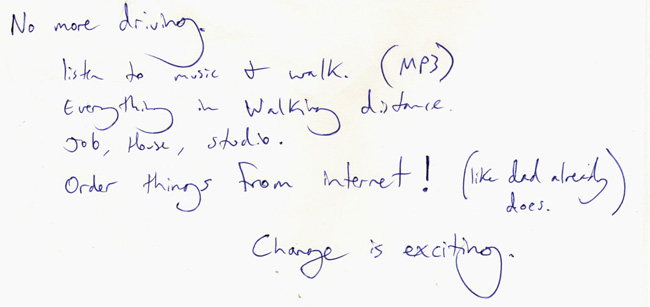 No more driving.
listen to music & walk. (MP3)
Everything in Walking distance.
Job, House, studio.
Order things from internet! (like dad already
does.)
Change is exciting.